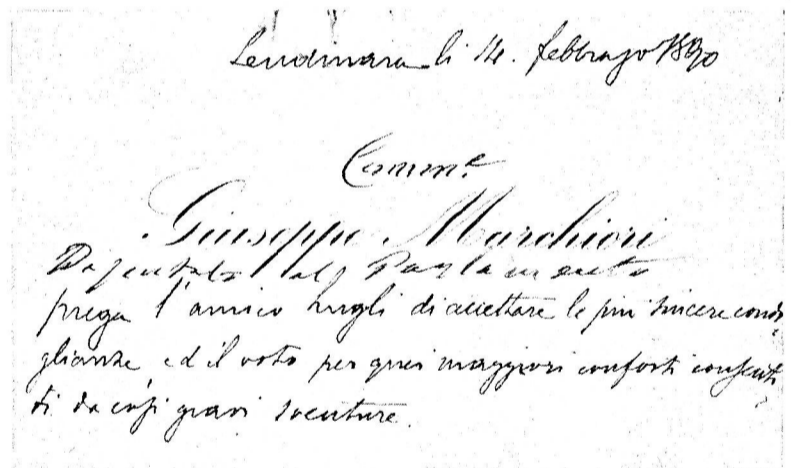 Lendinara li 14. febbrajo 1890
Comm.e
Giuseppe Marchiori
Deputato al Parlamento
prega l'amico Lugli di accettare le più sincere condo
glianze ed il voto per quei maggiori conforti consenti
ti da così gravi sventure.